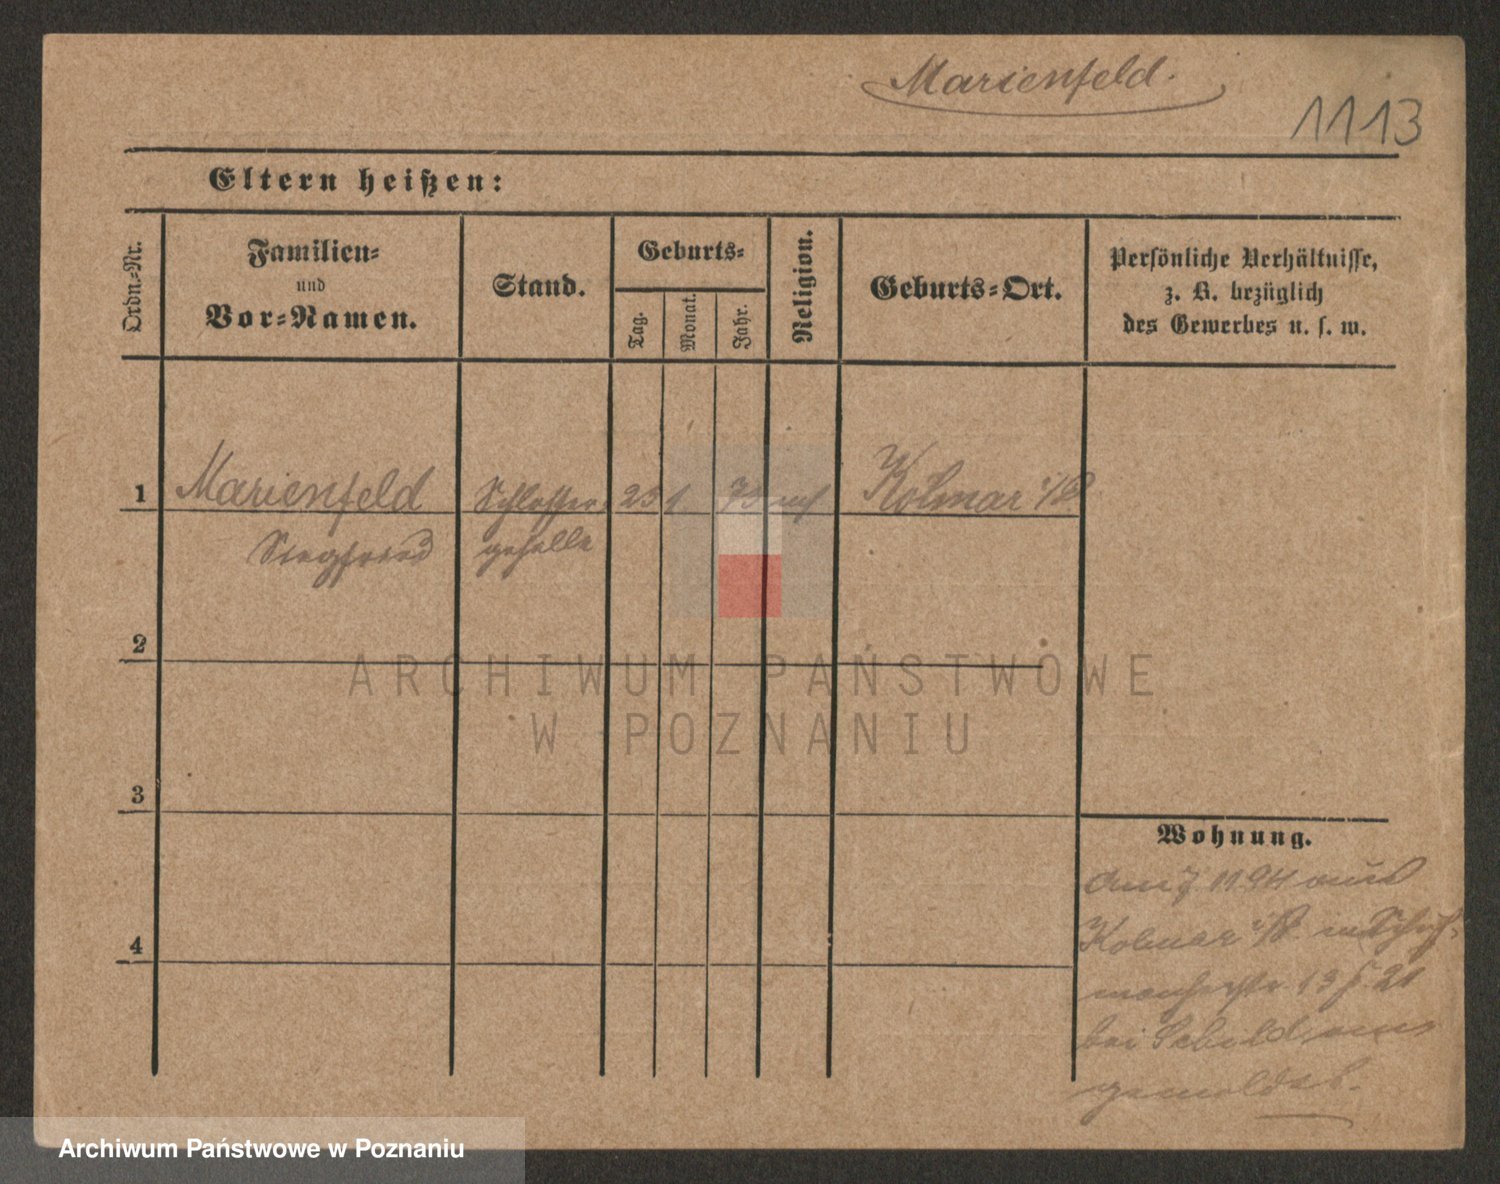 Marienfeld.
1113
Eltern heißen:
Ordn.-Nr.
Familien-
und
Vor-Namen.
Stand.
Geburts-
Tag.
Monat.
Jahr.
Religion.
Geburts-Ort.
Persönliche Verhältnisse,
z. B. bezüglich
des Gewerbes u. s. w.
1 Marienfeld Schlosser 23 1 73 Kolmar i/P.
Siegfried geselle
2
ARCHIWUM PAŃSTWOWE
W POZNANIU
3
Wohnung.
am 7 11 94 aus
Kolmar i/P.
4
13 21
bei
gemeldet.
Archiwum Państwowe w Poznaniu